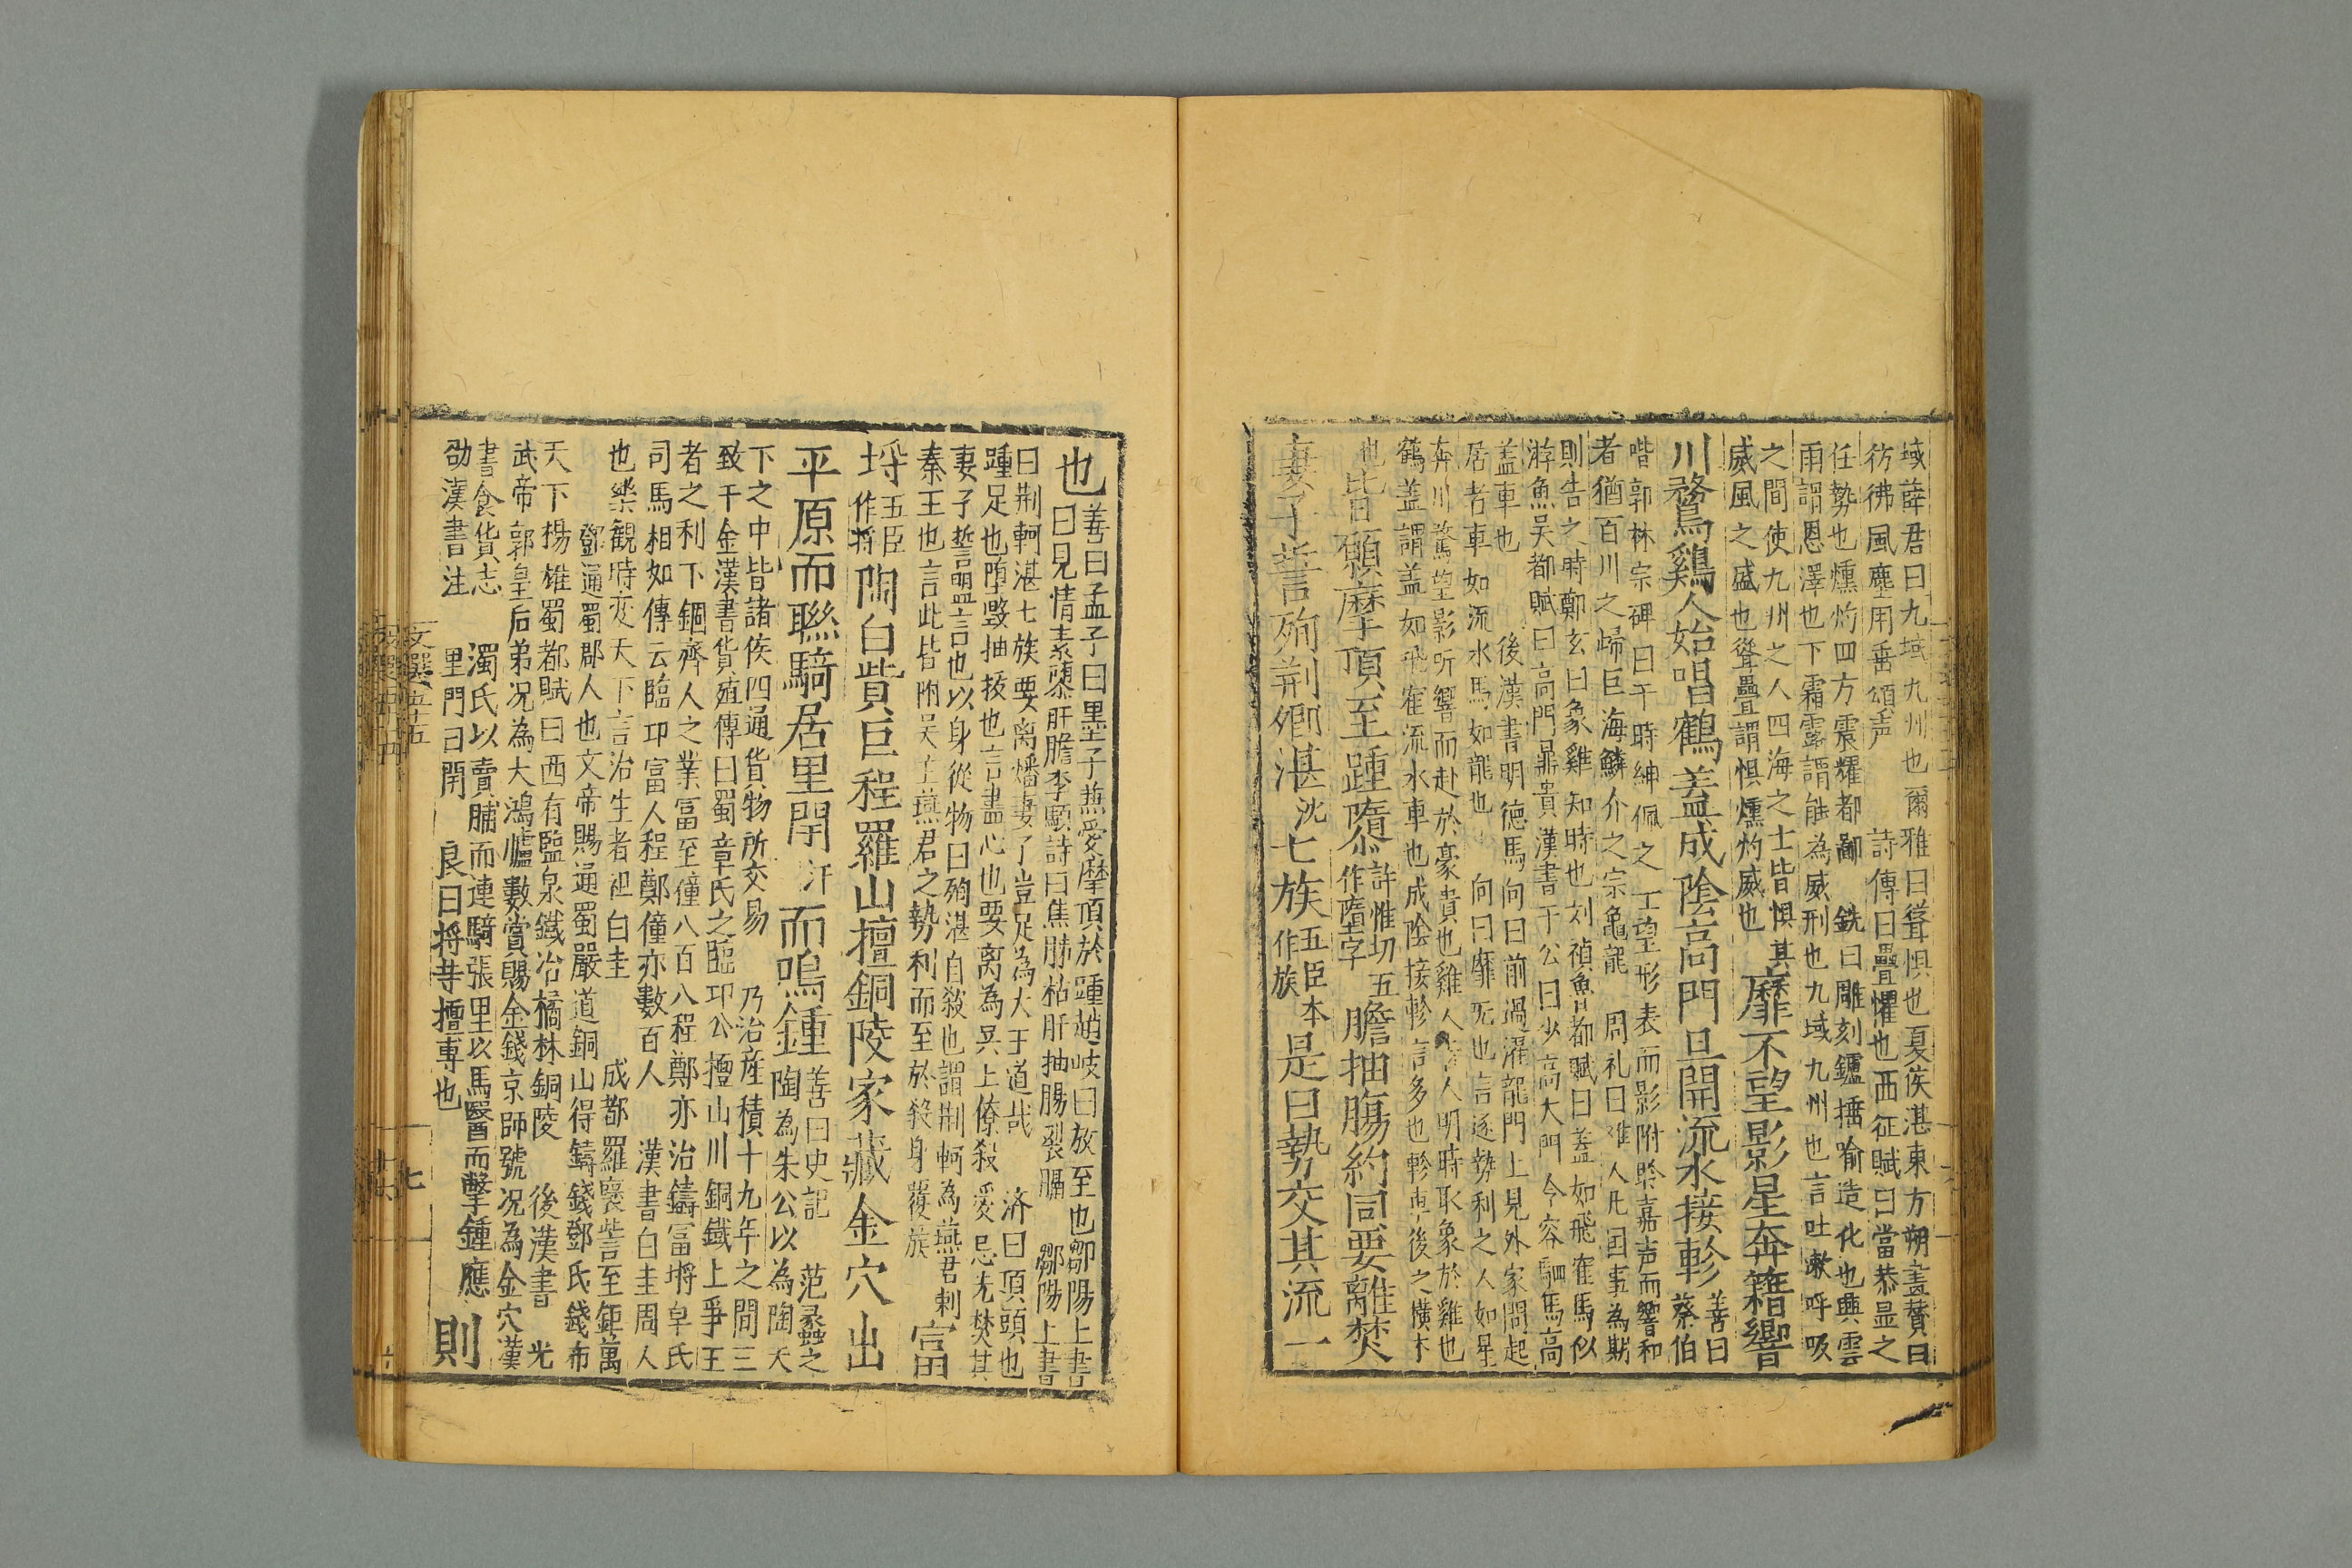 域薛君曰九域九州也爾雅曰聳惧也夏侯湛東方朔畫賛曰
彷彿風塵用垂頌声 詩傳曰疊懼也西征賦曰當恭显之
任勢也燻灼四方震耀都鄙 銑曰雕刻鑪捶喻造化也興雲
雨謂恩澤也下霜露謂能為威刑也九域九州也言吐漱呼吸
之間使九州之人四海之士皆惧其
威風之盛也聳疊謂惧燻灼威也
靡不望影星奔籍響
川鶩鷄人始唱鶴蓋成陰高門旦開流水接軫
善曰
蔡伯
喈郭林宗碑曰于時紳佩之士望形表而影附聆嘉声而響和
者猶百川之歸巨海鱗介之宗龜龍 周礼曰雞人凡国事為期
則告之時鄭玄曰象雞知時也刘禎魯都賦曰蓋如飛寉馬似
游魚吴都賦曰高門鼎貴漢書于公曰少高大門令容駟馬高
蓋車也 後漢書明德馬向曰前過濯龍門上見外家問起
居者車如流水馬如龍也 向曰靡无也言逐勢利之人如星
奔川騖望影听響而赴於豪貴也雞人 人明時取象於雞也
鶴蓋謂蓋如飛寉流水車也成陰接軫言多也軫車後之横木
也
皆願摩頂至踵隳
許惟切五
作墮字
膽抽膓約同要離焚
妻子誓殉荆卿湛
沈
七族
五臣本
作族
是曰勢交其流一
也
善曰孟子曰墨子兼愛摩頂於踵趙岐曰放至也鄒陽上書
曰見情素隳肝膽李顒詩曰焦肺枯肝抽腸裂膈 鄒陽上書
曰荆軻湛七族要离燔妻子豈足為大王道哉 济曰頂頭也
踵足也隳毀抽拔也言盡心也要离為吴上僚殺 忌先焚其
妻子誓盟言也以身從物曰殉湛自殺也謂荆軻為燕君刺
秦王也言此皆附吴王燕君之勢利而至於殺身覆族
富
埒
五臣
作將
陶白貲巨程羅山擅銅陵家藏金穴出
平原而聯騎居里閈
汗
而鳴鍾
善曰史記 范蠡之
陶為朱公以為陶天
下之中皆諸侯四通貨物所交易 乃治産積十九年之間三
致千金漢書貨殖傳曰蜀章氏之臨卭公擅山川銅鐵上爭王
者之利下錮齊人之業富至僮八百八程鄭亦治鑄富埒卓氏
司馬相如傳云臨卭富人程鄭僮亦數百人 漢書白圭周人
也樂觀時变天下言治生者祖白圭 成都羅裒訾至鉅萬
鄧通蜀郡人也文帝賜通蜀嚴道銅山得鑄錢鄧氏錢布
天下揚雄蜀都賦曰西有鹽泉鐵冶橘林銅陵 後漢書 光
武帝郭皇后弟况為大鴻臚數賞賜金錢京師號况為金穴漢
書食貨志 濁氏以賣脯而連騎張里以馬醫而擊鍾應
劭漢書注 里門曰閈 良曰將等擅專也
則
文選五十五
七